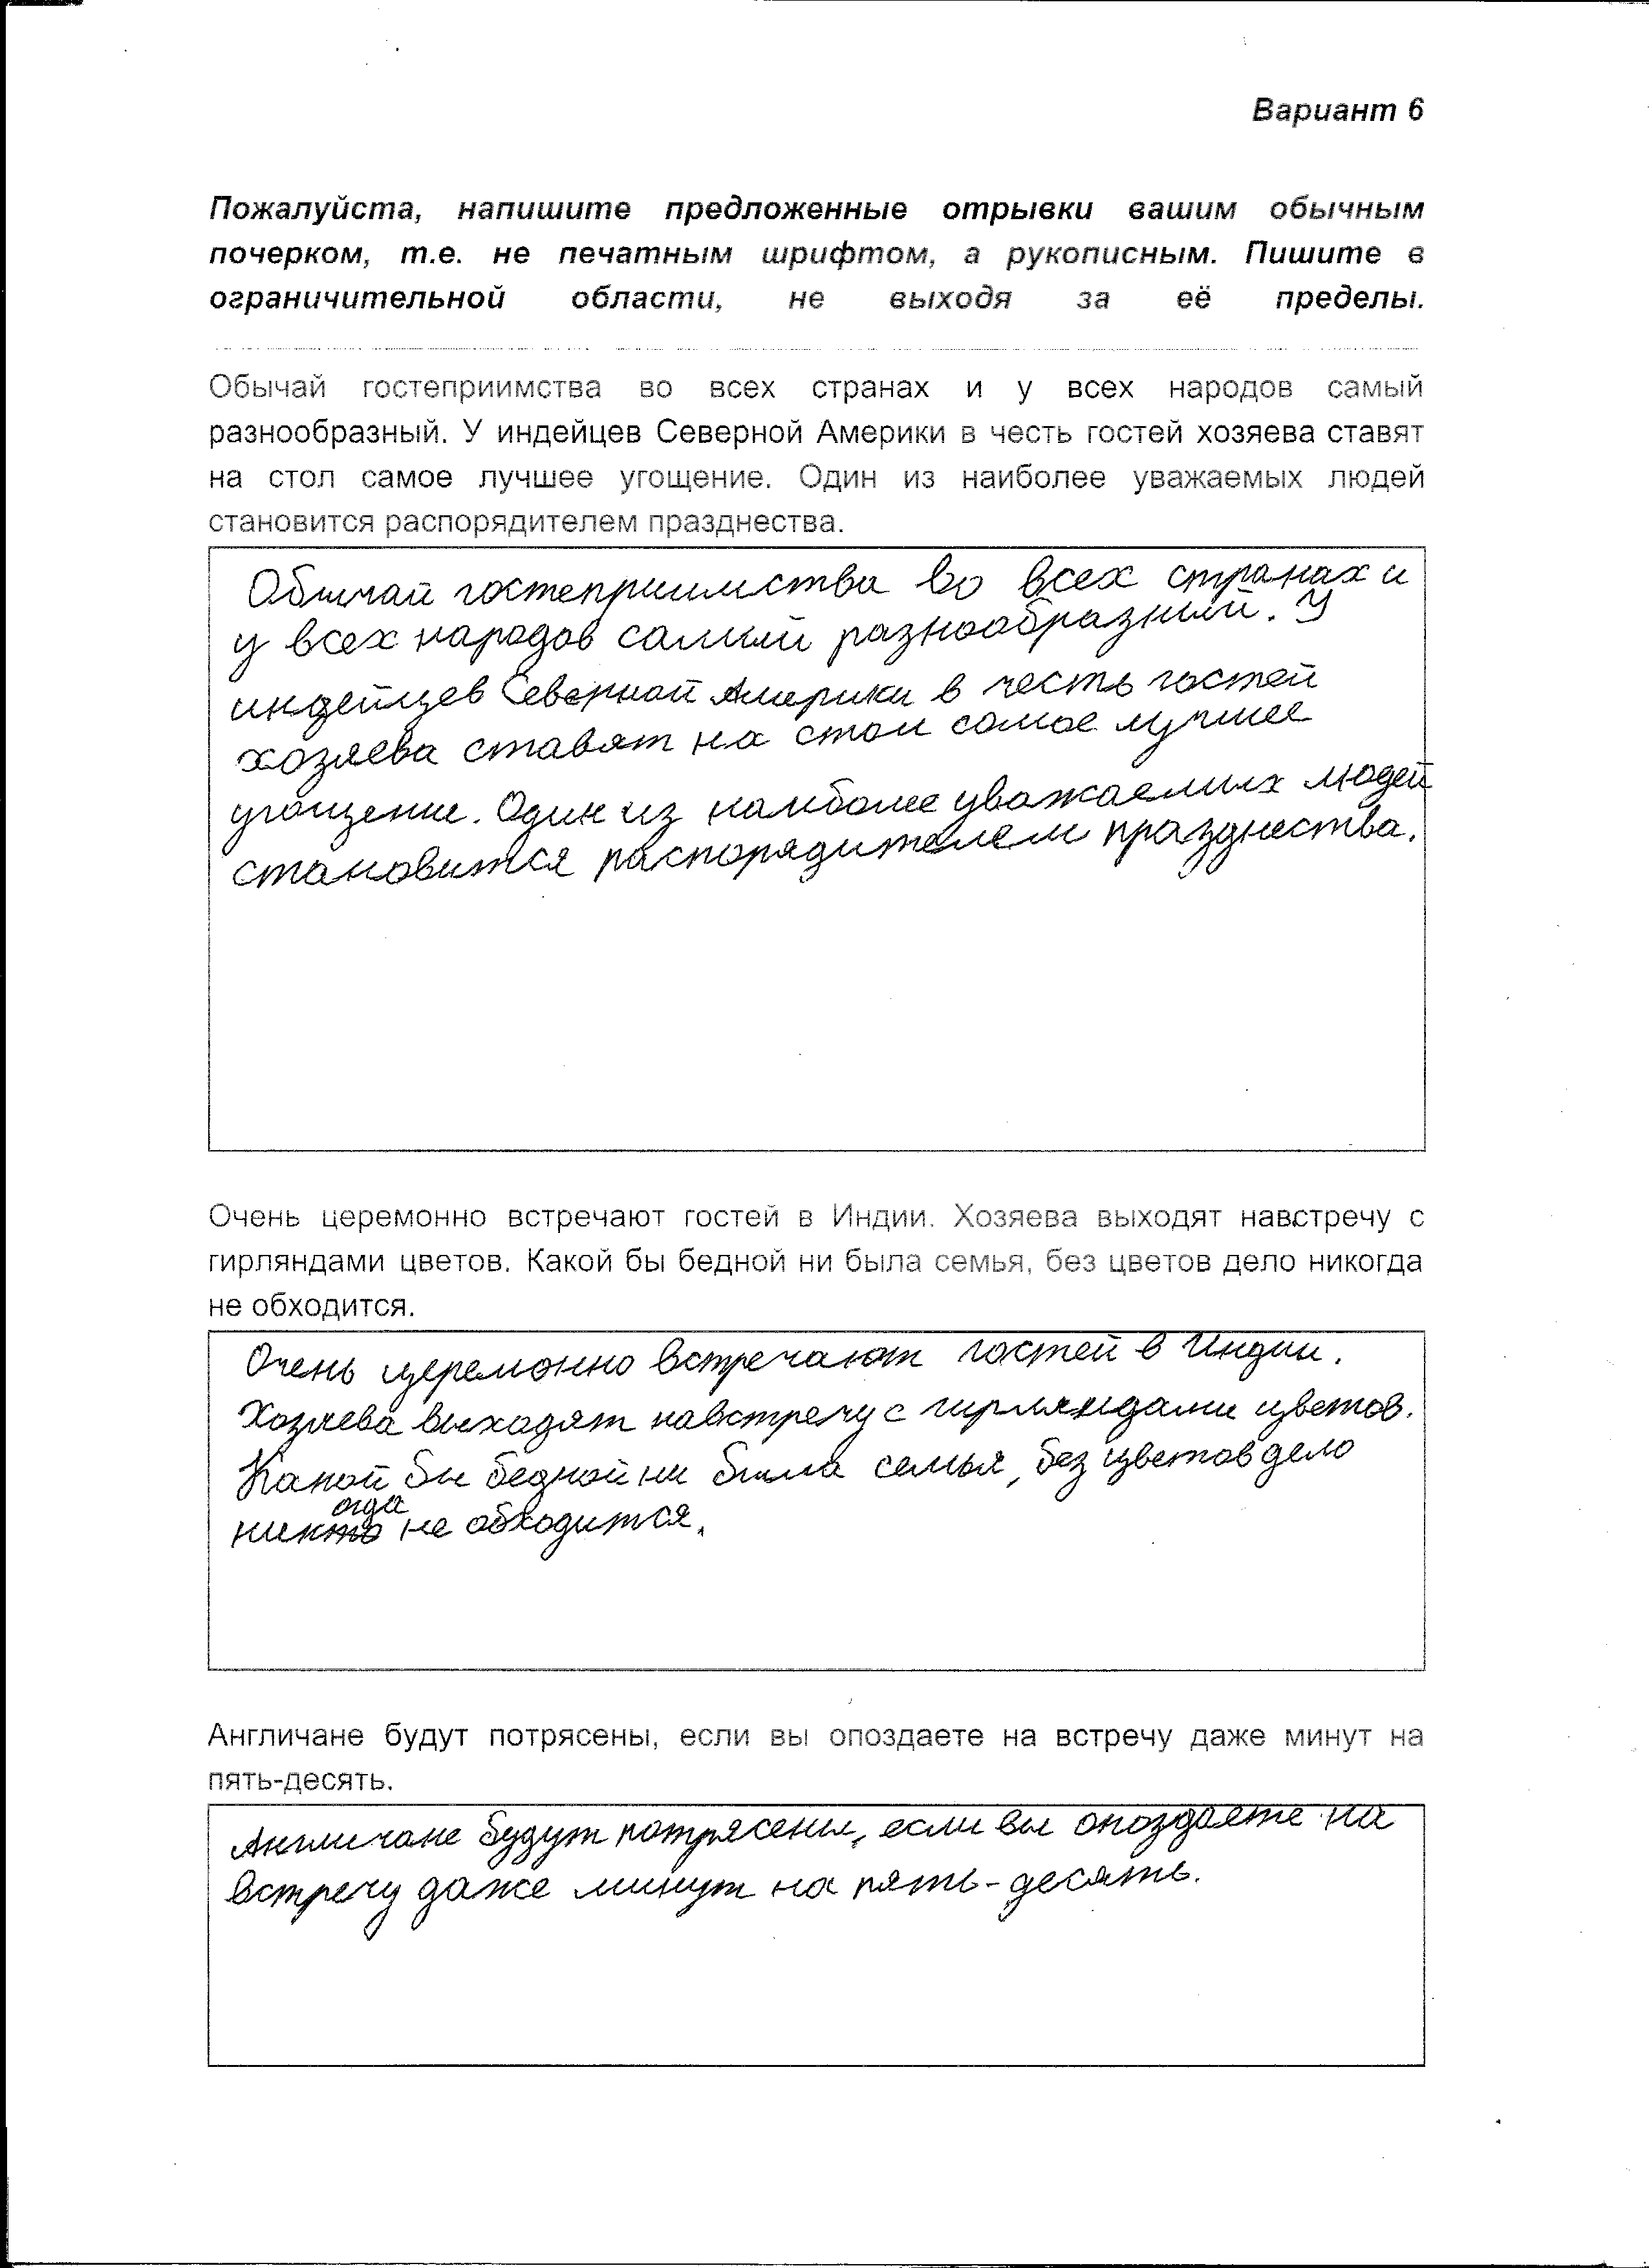 Вариант 6
Пожалуйста, напишите предложенные отрывки вашим обычным
почерком, т.е. не печатным шрифтом, а рукописным. Пишите в
ограничительной области, не выходя за её пределы.
Обычай гостеприимства во всех странах и у всех народов самый
разнообразный. У индейцев Северной Америки в честь гостей хозяева ставят
на стол самое лучшее угощение. Один из наиболее уважаемых людей
становится распорядителем празднества.
Обычай гостеприимства во всех странах и
у всех народов самый разнообразный. У
индейцев Северной Америки в честь гостей
хозяева ставят на стол самое лучшее
угощение. Один из наиболее уважаемых людей
становится распорядителем празднества.
Очень церемонно встречают гостей в Индии. Хозяева выходят навстречу с
гирляндами цветов. Какой бы бедной ни была семья, без цветов дело никогда
не обходится.
Очень церемонно встречают гостей в Индии.
Хозяева выходят навстречу с гирляндами цветов.
Какой бы бедной ни была семья, без цветов дело
огда
никто не обходится.
Англичане будут потрясены, если вы опоздаете на встречу даже минут на
пять-десять.
Англичане будут потрясены, если вы опоздаете на
встречу даже минут на пять-десять.